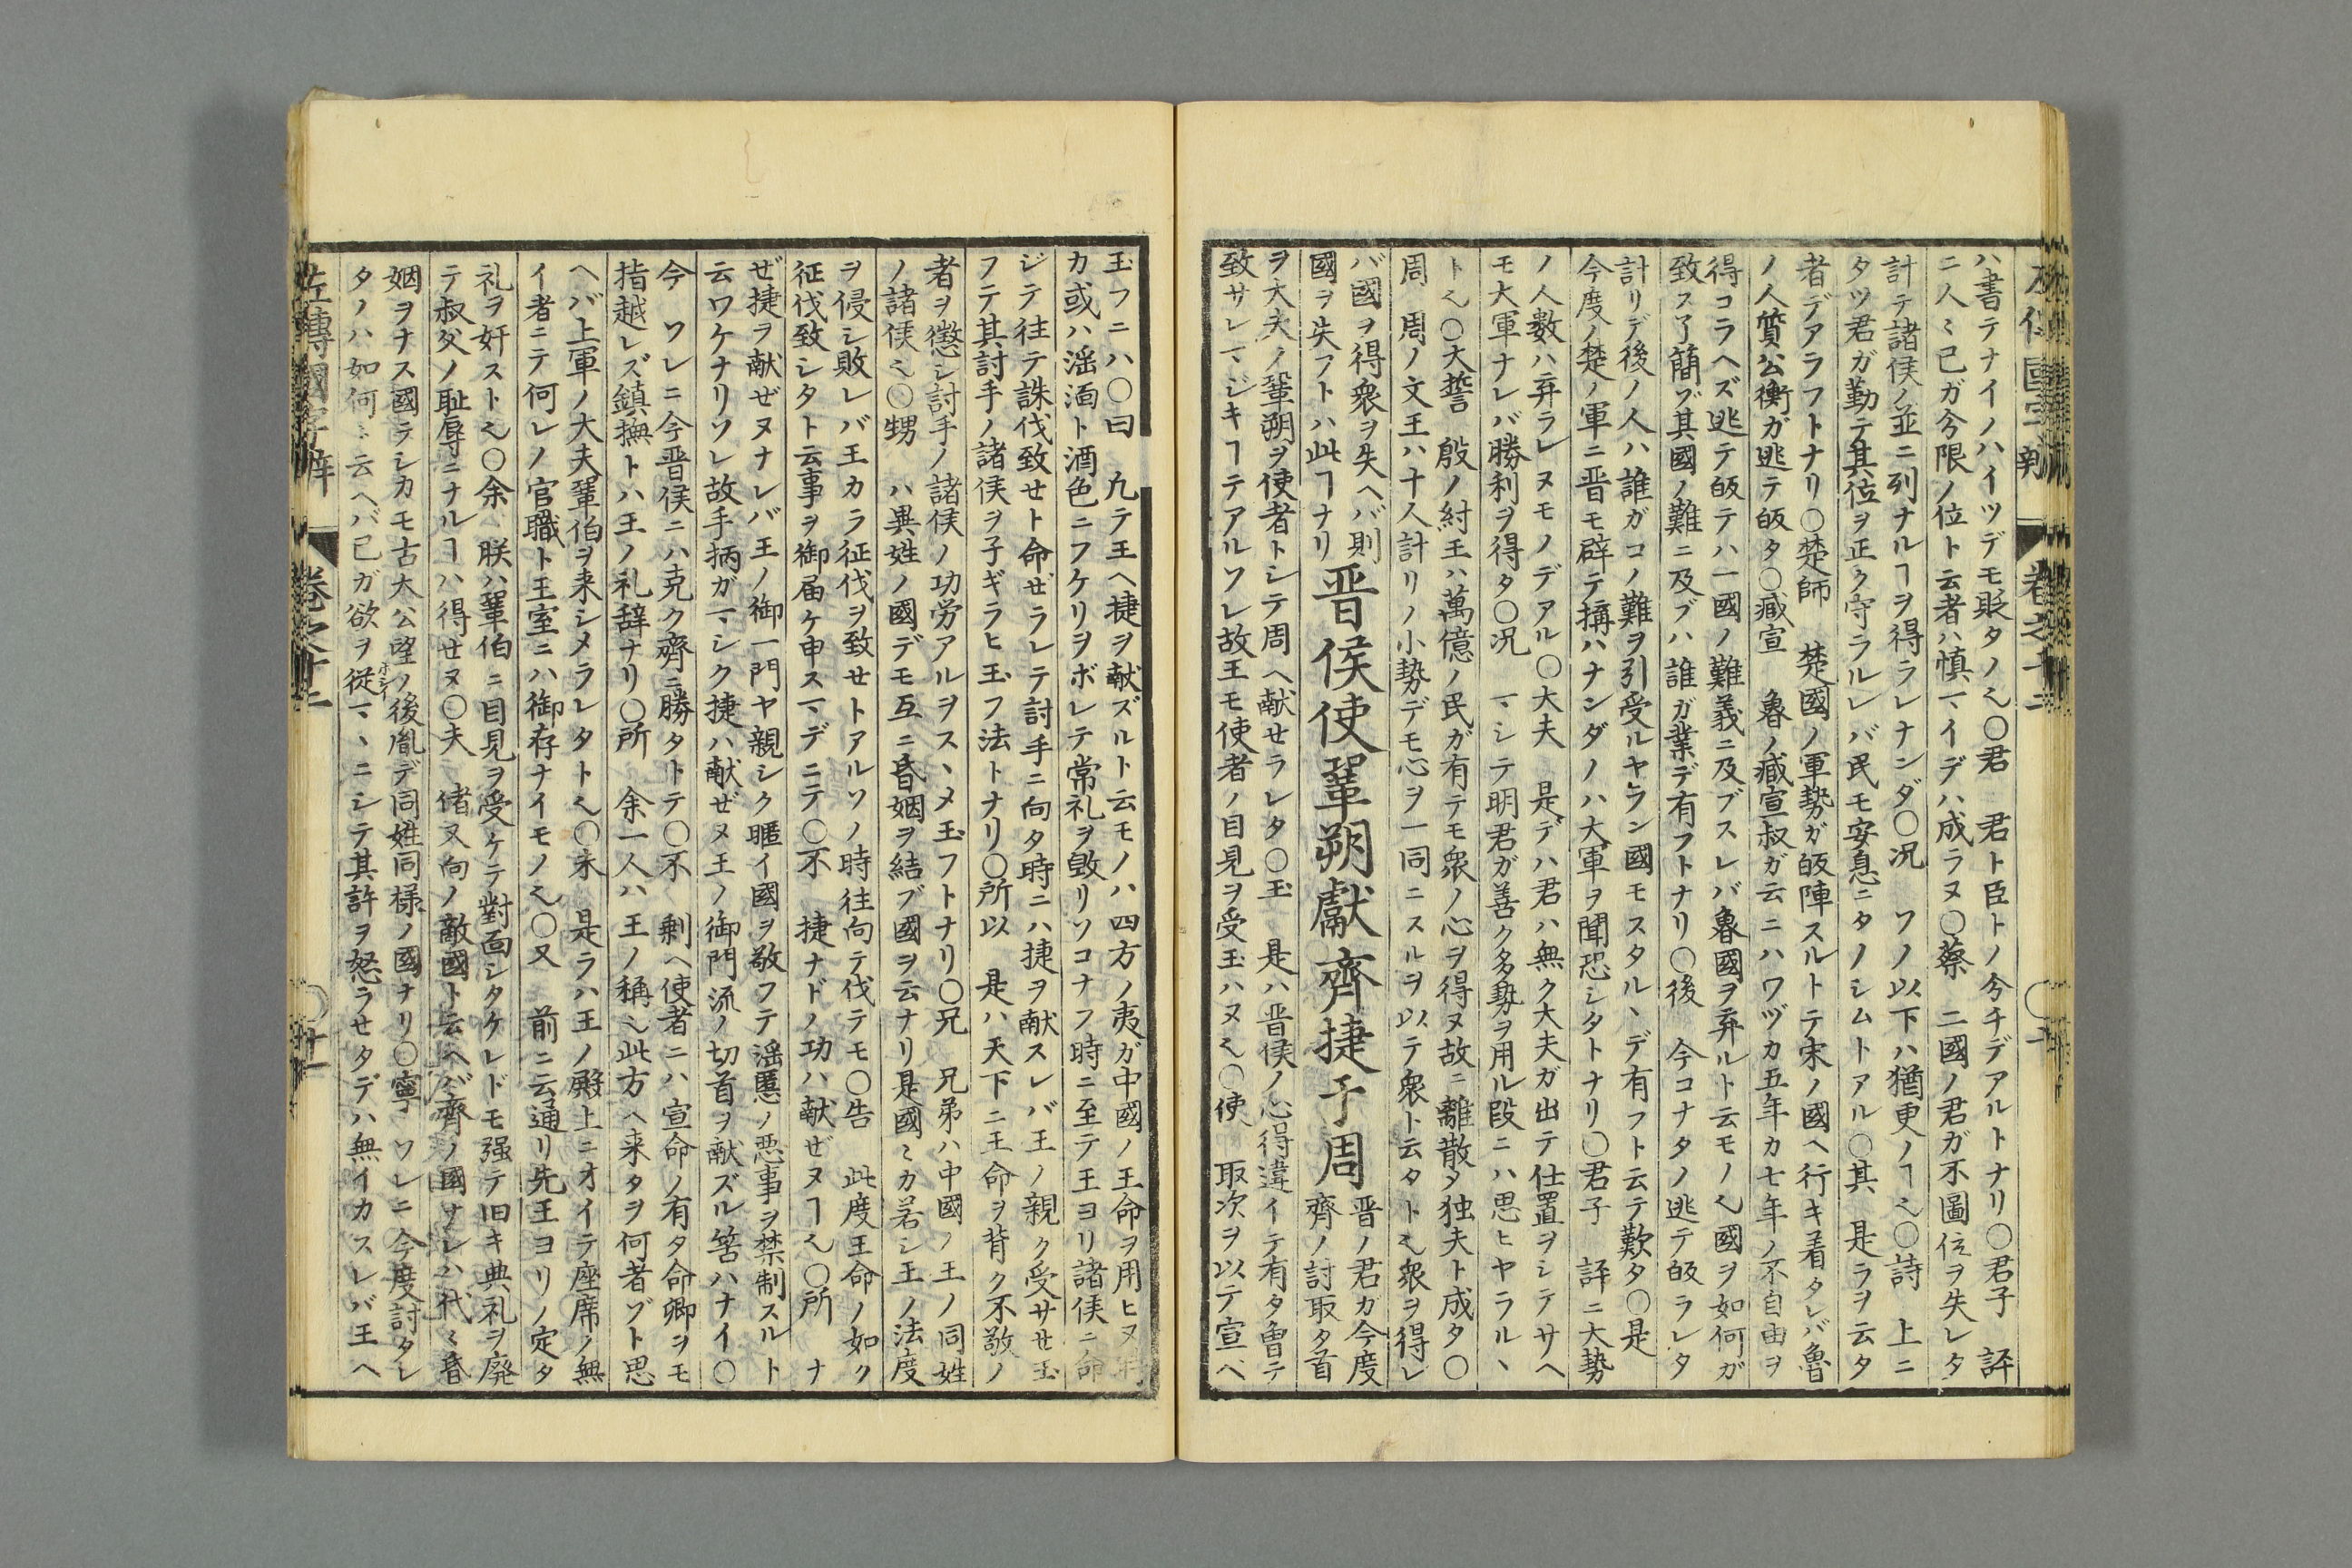 ハ書テナイノハイツデモ貶タノ也〇君　君ト臣トノ分チデアルトナリ〇君子　評
ニ人〻己ガ今限ノ位ト云者ハ慎マイデハ成ラヌ〇蔡　二國ノ君ガ不圖位ヲ失レタ
計テ諸侯ノ並ニ列ナルヿヲ得ラレナンダ〇况　ソノ以下ハ猶更ノヿ也〇詩　上ニ
タツ君ガ勤テ其位ヲ正ク守ラルレバ民モ安息ニタノシムトアル〇其　是ラヲ云タ
者デアラフトナリ〇楚師　楚國ノ軍勢ガ皈陣スルトテ宋ノ國ヘ行キ着タレバ魯
ノ人質公衡ガ逃テ皈タ〇臧宣　魯ノ臧宣叔ガ云ニハワヅカ五年カ七年ノ不自由ヲ
得コラヘズ逃テ皈テハ一國ノ難義ニ及ブスレバ魯國ヲ弃ルト云モノ也國ヲ如何ガ
致ス了簡ゾ其國ノ難ニ及ブハ誰ガ業デ有フトナリ〇後　今コナタノ逃テ皈ラレタ
計リデ後ノ人ハ誰ガコノ難ヲ引受ルヤラン國モスタルヽデ有フト云テ歎タ〇是
今度ノ楚ノ軍ニ晋モ辟テ搆ハナンダノハ大軍ヲ聞恐シタトナリ〇君子　評ニ大勢
ノ人数ハ弃ラレヌモノデアル〇大夫　是デハ君ハ無ク大夫ガ出テ仕置ヲシテサヘ
モ大軍ナレバ勝利ヲ得タ〇况　マシテ明君ガ善ク多勢ヲ用ル段ニハ思ヒヤラルヽ
ト也〇大誓　殷ノ紂王ハ萬億ノ民ガ有テモ衆ノ心ヲ得ヌ故ニ離散タ独夫ト成タ〇
周　周ノ文王ハ十人計リノ小勢デモ心ヲ一同ニスルヲ以テ衆ト云タト也衆ヲ得レ
バ國ヲ得衆ヲ失ヘバ則
國ヲ失フトハ此ヿナリ
晋侯使鞏朔獻齊捷于周
晋ノ君カ今度
齊ノ討取タ首
ヲ大夫ノ鞏朔ヲ使者トシテ周ヘ献セラレタ〇王　是ハ晋侯ノ心得違イテ有タ會テ
致サレマジキヿテアルソレ故王モ使者ノ目見ヲ受玉ハヌ也〇使　取次ヲ以テ宣ベ
玉フニハ〇曰　凡テ王ヘ捷ヲ献ズルト云モノハ四方ノ夷ガ中國ノ王命ヲ用ヒヌ
カ或ハ淫湎ト酒色ニフケリヲボレテ常礼ヲ毀リソコナフ時ニ至テ王ヨリ諸侯ニ命
ジテ往テ誅伐致せト命ぜラレテ討手ニ向タ時ニハ捷ヲ献スレバ王ノ親ク受サせ玉
フテ其討手ノ諸侯ヲ子ギラヒ玉フ法トナリ〇所以　是ハ天下ニ王命ヲ背ク不敬ノ
者ヲ懲シ討手ノ諸侯ノ功労アルヲスヽメ玉フトナリ〇兄　兄弟ハ中國ノ王ノ同姓
ノ諸侯也〇甥　ハ異姓ノ國デモ互ニ昏姻ヲ結ブ國ヲ云ナリ是國〻カ若シ王ノ法度
ヲ侵シ敗レバ王カラ征伐ヲ致せトアルソノ時往向テ伐テモ〇告　此度王命ノ如ク
征伐致シタト云事ヲ御届ケ申スマデニテ〇不　捷ナドノ功ハ献ぜヌヿ也〇所　ナ
ぜ捷ヲ献ぜヌナレバ王ノ御一門ヤ親シク暱イ國ヲ敬フテ淫慝ノ悪事ヲ禁制スルト
云ワケナリソレ故手柄ガマシク捷ハ献ぜヌ王ノ御門流ノ切首ヲ献ズル筈ハナイ〇
今　ソレニ今晋侯ニハ克ク齊ニ勝タトテ〇不　剰ヘ使者ニハ宣命ノ有タ命卿ヲモ
指越レズ鎮撫トハ王ノ礼辞ナリ〇所　余一人ハ王ノ稱也此方ヘ来タヲ何者ゾト思
ヘバ上軍ノ大夫鞏伯ヲ来シメラレタト也〇未　是ラハ王ノ殿上ニオイテ座席ノ無
イ者ニテ何レノ官職ト王室ニハ御存ナイモノ也〇又　前ニ云通リ先王ヨリノ定タ
礼ヲ奸スト也〇余　朕ハ鞏伯ニ目見ヲ受ケテ對面シタケレドモ强テ旧キ典礼ヲ廃
テ叔父ノ耻辱ニナルヿハ得せヌ〇夫　偖又向ノ敵國ト云ヘバ齊ノ國ナレハ代〻昏
姻ヲナス國テシカモ古大公望ノ後胤デ同姓同様ノ國ナリ〇寧　ソレニ今度討タレ
タノハ如何ニ云ヘバ己ガ欲ヲ従マヽニシテ其許ヲ怒ラせタデハ無イカスレバ王ヘ
左傳國字辯　巻之十二　廿一